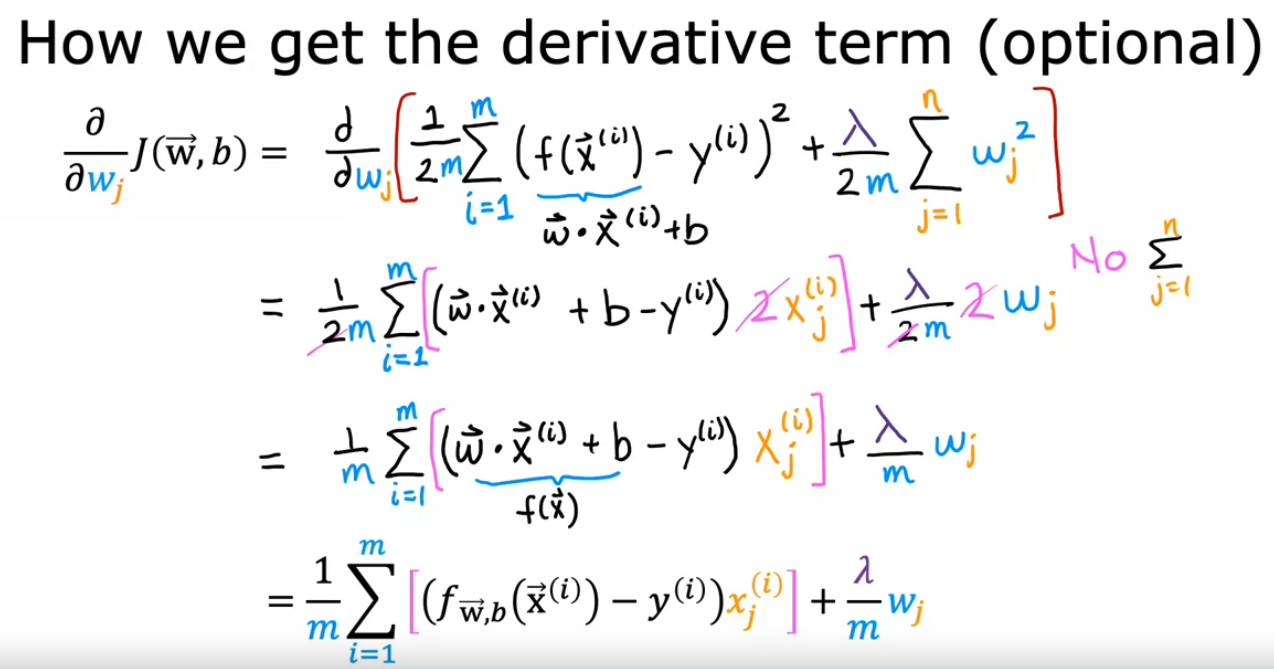 How we get the derivative term (optional)
∂/∂wⱼ J(w⃗,b) = d/dwⱼ [ 1/2m Σᵢ₌₁ᵐ (f(x⃗⁽ⁱ⁾) - y⁽ⁱ⁾)² + λ/2m Σⱼ₌₁ⁿ wⱼ² ]
w⃗·x⃗⁽ⁱ⁾+b
= 1/2m Σᵢ₌₁ᵐ [(w⃗·x⃗⁽ⁱ⁾ + b - y⁽ⁱ⁾) 2xⱼ⁽ⁱ⁾] + λ/2m 2wⱼ No Σⱼ₌₁ⁿ
= 1/m Σᵢ₌₁ᵐ [(w⃗·x⃗⁽ⁱ⁾ + b - y⁽ⁱ⁾) xⱼ⁽ⁱ⁾] + λ/m wⱼ
f(x⃗)
= 1/m Σᵢ₌₁ᵐ [(f w⃗,b(x⃗⁽ⁱ⁾) − y⁽ⁱ⁾)xⱼ⁽ⁱ⁾] + λ/m wⱼ